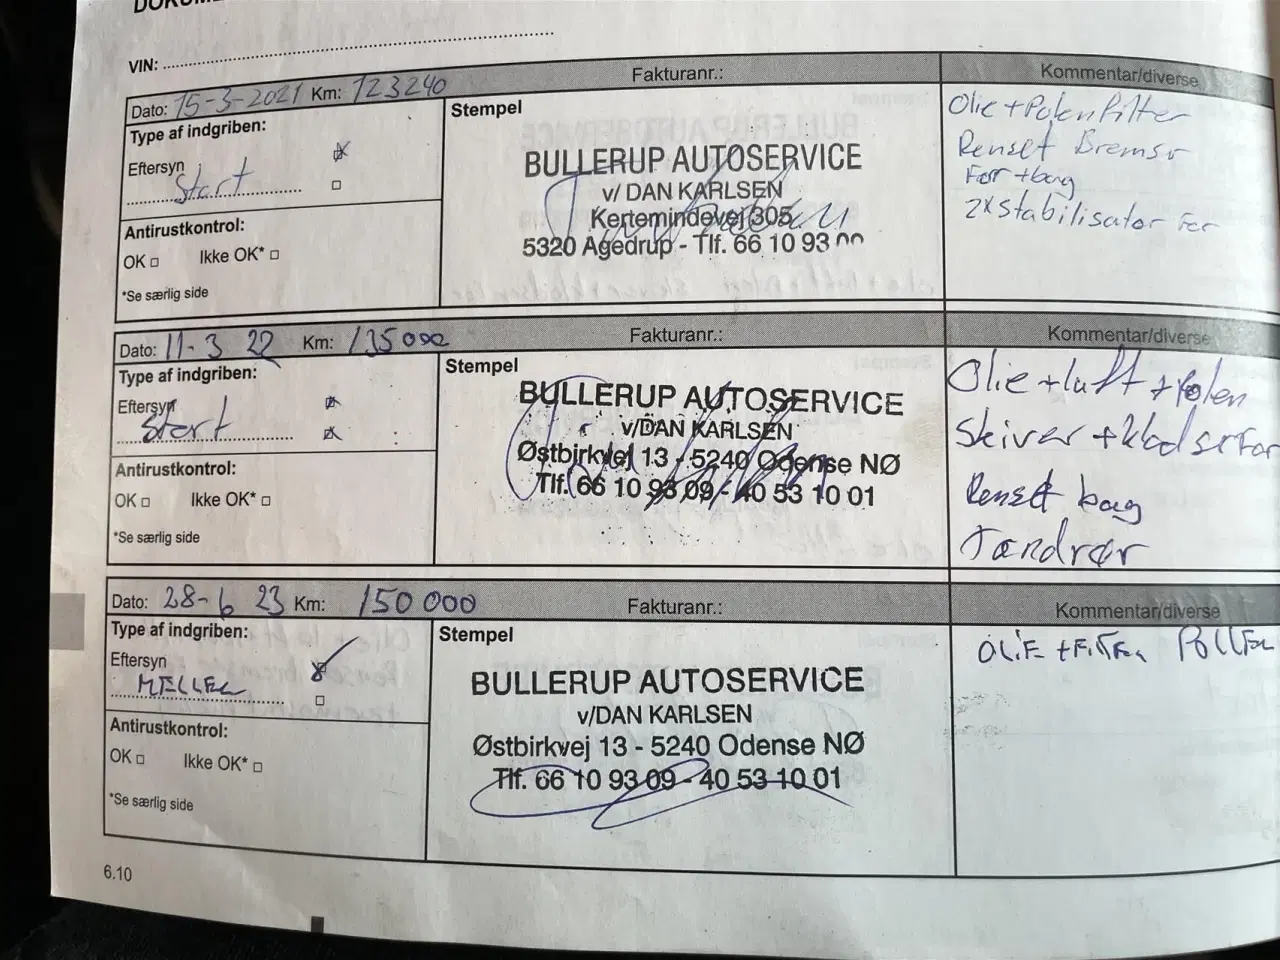 VIN:
Dato: 15-3-2021 Km: 123240 Fakturanr.: Kommentar/diverse
Type af indgriben:
Eftersyn
Start
Antirustkontrol:
OK Ikke OK*
*Se særlig side
Stempel
BULLERUP AUTOSERVICE
v/ DAN KARLSEN
Kertemindevej 305
5320 Agedrup - Tlf. 66 10 93
Olie + Polenfilter
Renset Bremser
For + bag
2x stabilisator For
Dato: 11-3 22 Km: 135000 Fakturanr.: Kommentar/diverse
Type af indgriben:
Eftersyn
Start
Antirustkontrol:
OK Ikke OK*
*Se særlig side
Stempel
BULLERUP AUTOSERVICE
v/DAN KARLSEN
Østbirkvej 13 - 5240 Odense NØ
Tlf. 66 10 93 09 - 40 53 10 01
Olie + luft + Polen
Skiver + klodser For
Renset bag
Tændrør
Dato: 28-6 23 Km: 150 000 Fakturanr.: Kommentar/diverse
Type af indgriben:
Eftersyn
MELLEM
Antirustkontrol:
OK Ikke OK*
*Se særlig side
Stempel
BULLERUP AUTOSERVICE
v/DAN KARLSEN
Østbirkvej 13 - 5240 Odense NØ
Tlf. 66 10 93 09 - 40 53 10 01
OLIE + FILTER POLLEN
6.10